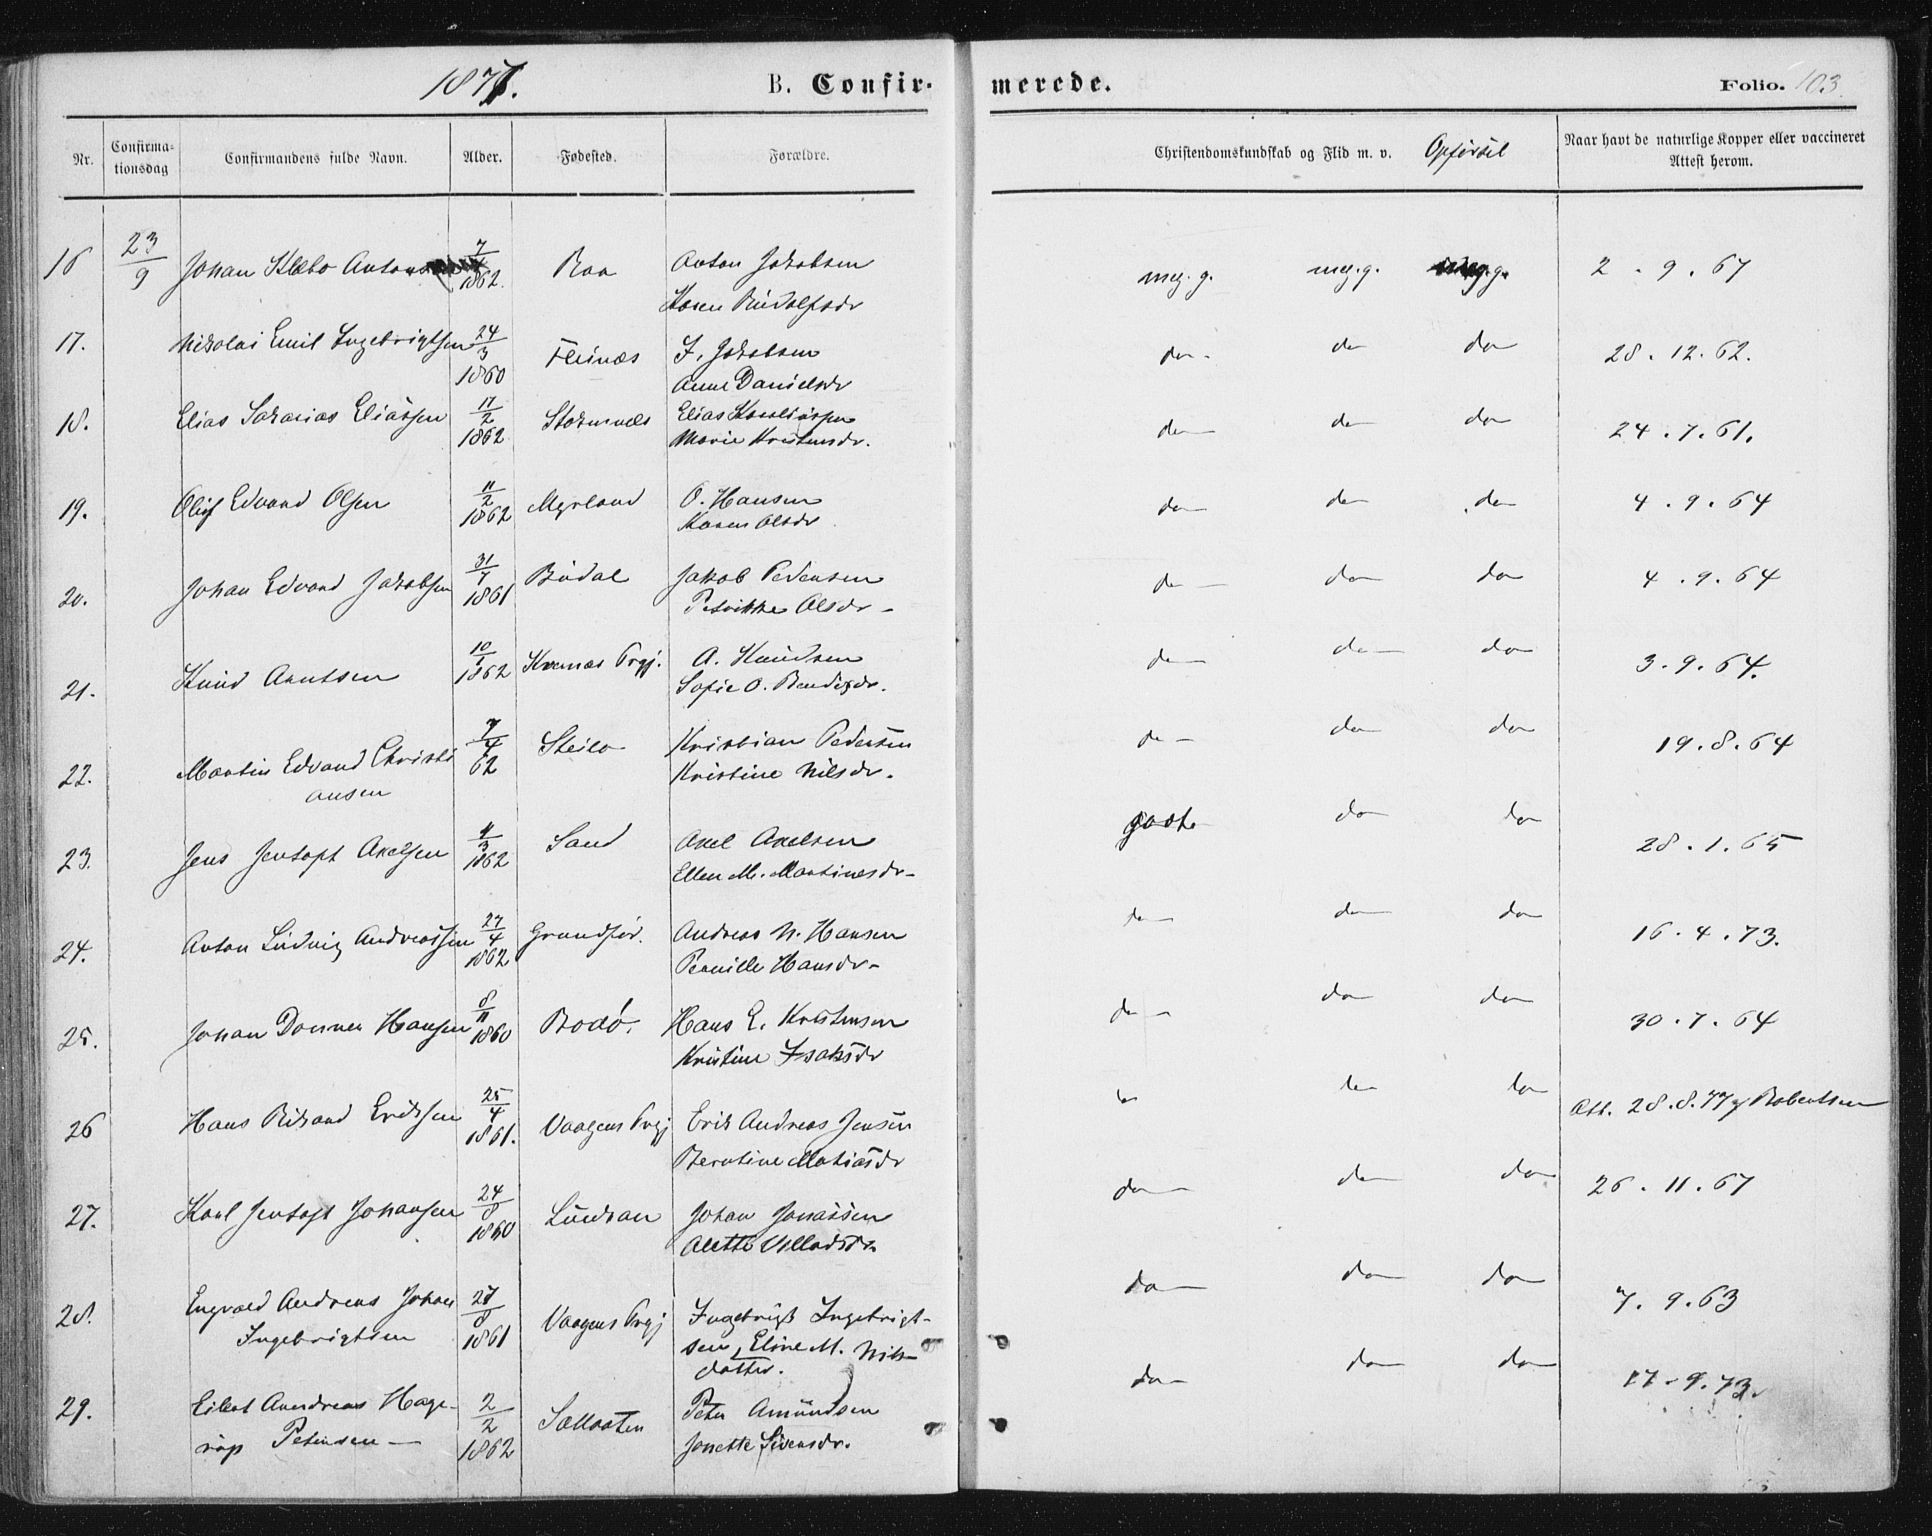 1877. B. Confir- merede. Folio. 103.
Nr. Confirma-tionsdag Confirmandens fulde Navn. Alder. Fødested. Forældre. Christendomskundskab og Flid m. v. Opførsel Naar havt de naturlige Kopper eller vaccineret Attest herom.
16 23/9 Johan Klæbo 7 1862. Roa Anton Jakobsen meg. g. meg. g. meg. g. 2 . 9 . 67
Karen Rudolfsdr
17. Nikolai Emil Ingebrigtsen 24/3 1860 Fleinæs I. Jakobsen do do do 28 . 12 . 62.
Anne Danielsdr
18. Elias Sakarias Eliassen 17/2 1862 Stokmnæs Elias do do do 24 . 7 . 61.
Marie Kristensdr.
19. Oluf Edvard Olsen 11/2 1862 Myrland O. Hansen do do do 4 . 9 . 64
Karen Olsdr
20. Johan Edvard Jakobsen 31/7 1861 Budal Jakob Pedersen do do do 4 . 9 . 64
Petrikke Olsdr -
21. Knud Arntsen 10 1862 Kvernæs Prgj. A. Knudsen do do do 3 . 9 . 64.
Sofie O. Bendixdr.
22. Martin Edvard Christi ansen 7/4 62 Steilo Kristian Pedersen do do do 19 . 8 . 64
Kristine Nilsdr.
23. Jens Jentoft Axelsen 4/3 1862 Sand Axel Axelsen godt do do 28 . 1 . 65
Ellen M. Martinesdr -
24. Anton Ludvig Andreassen 27/4 1862 Grundfør. Andreas N. Hansen do do do 16 . 4 . 73.
Pernille Hansdr -
25. Johan Danner Hansen 8/11 1860 Bodø. Hans E. Kristensen do do do 30 . 7 . 64
Kristine Isaksdr
26 Hans Rikard Eriksen 25/4 1861. Vaagens Prgj Erik Andreas Jensen do do do Att. 28 . 8 . 77 Robertsen
Berntine Matiasdr
27. Karl Jentoft Johansen 24/8 1860 Johan Jonassen do do do 26 . 11 . 67
Alette Villadsdr
28. Engvald Andreas Johan 27/8 1861 Vaagens Prgj Ingebrigt Ingebrigt- do do do 7 . 9 . 63
Ingebrigtsen sen, Eline M. Nils-
datter.
29. Eilert Andreas Hage- 2/2 1862 Peter Amundsen do do do 17 . 9 . 73.
rup Petersen — Jonette Sivensdr.